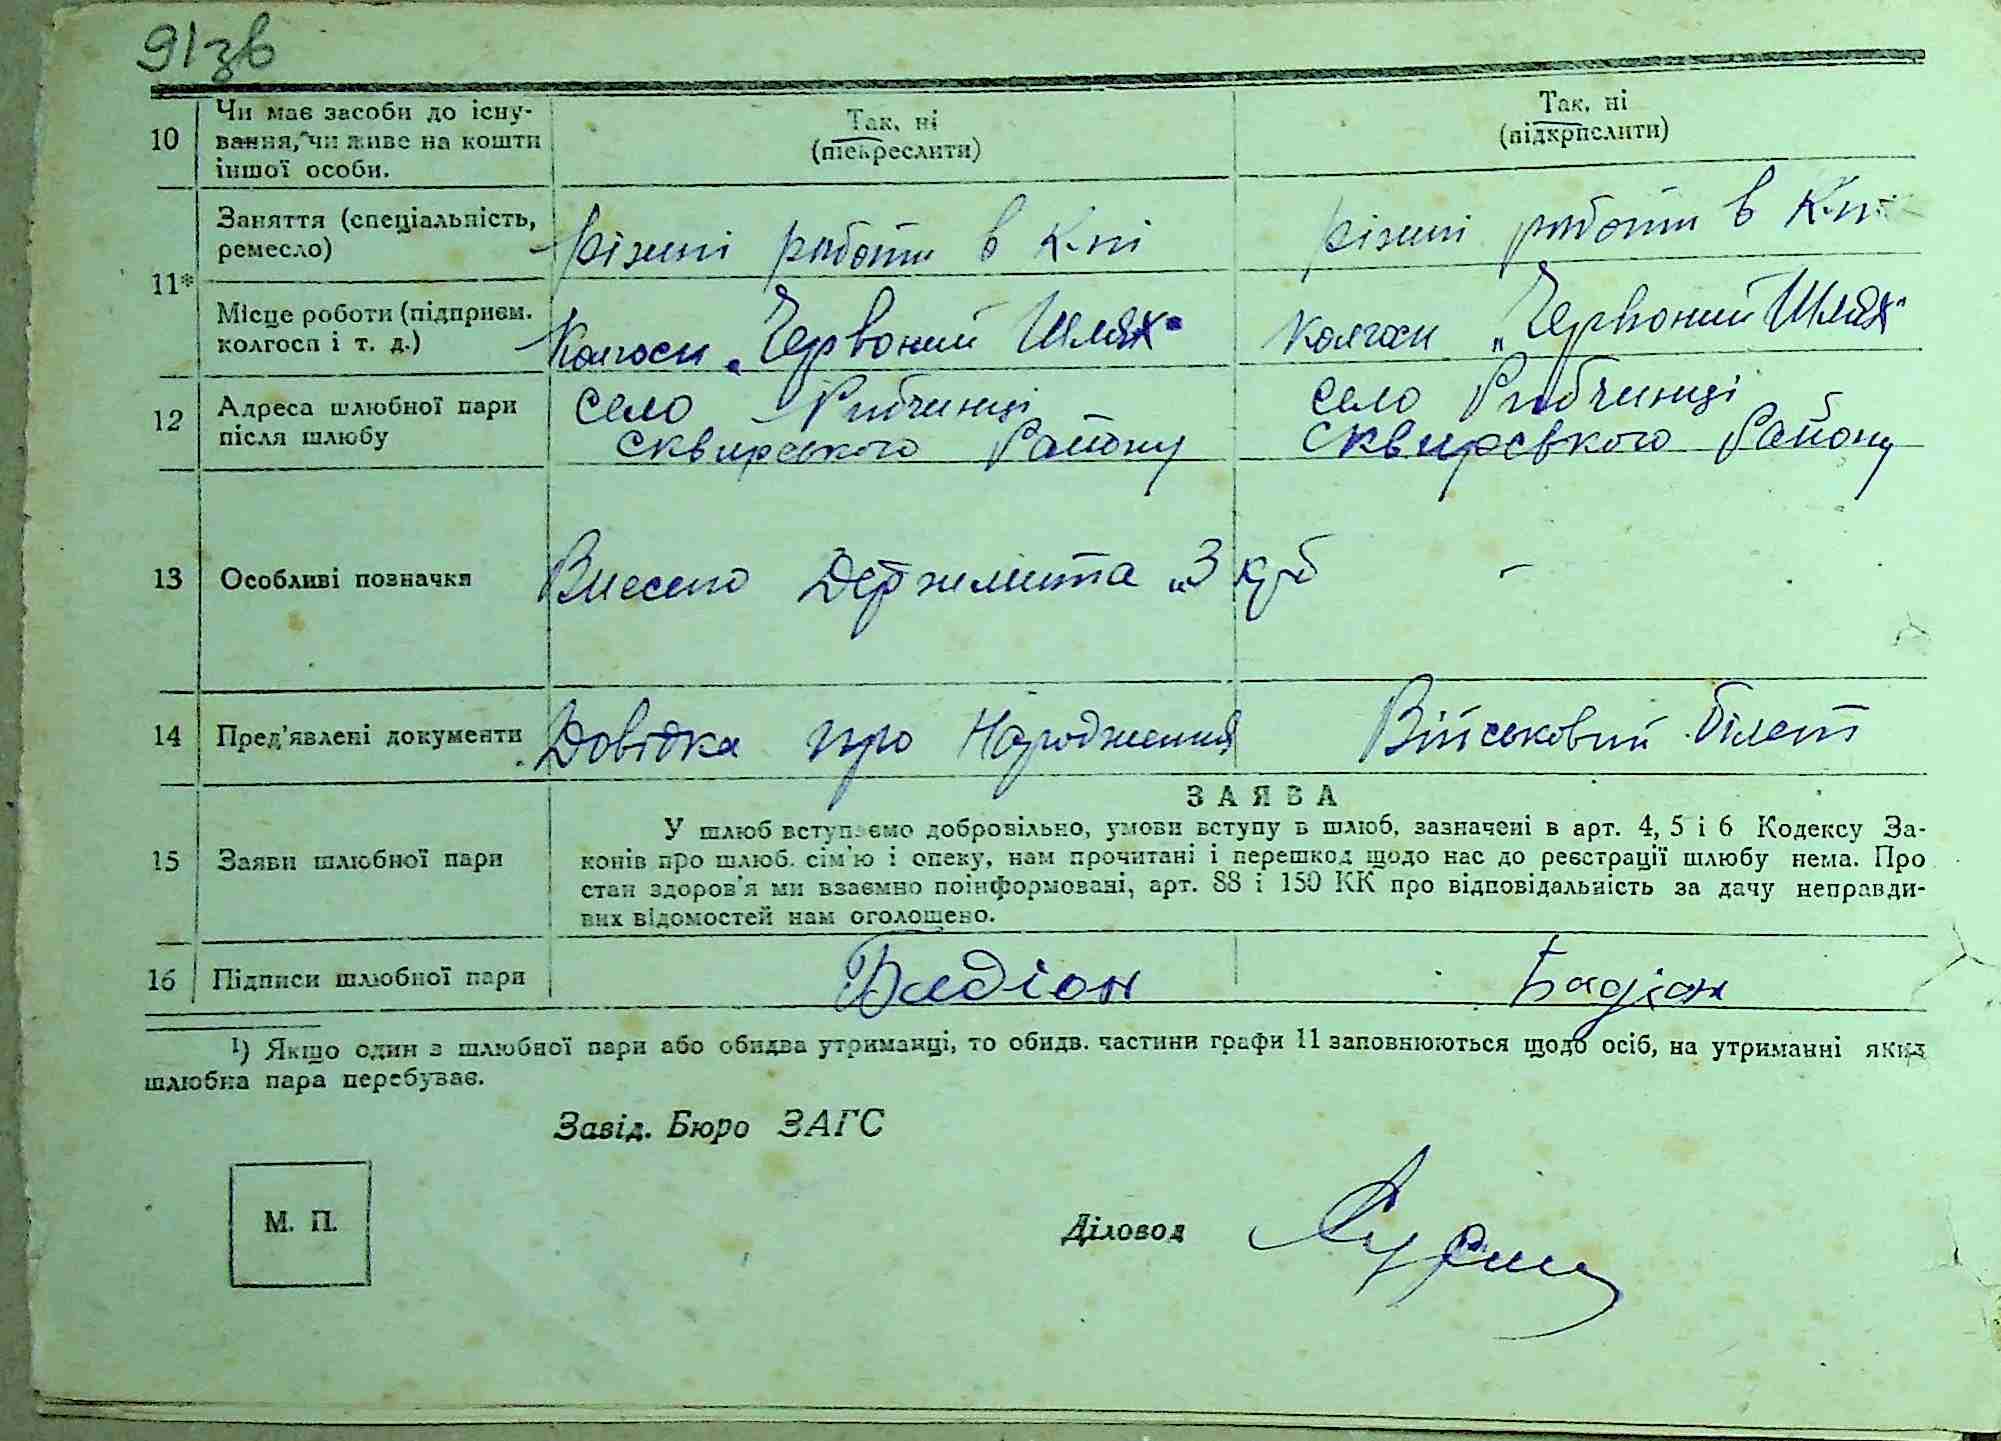 91зв
10 Чи має засоби до існу-
вання, чи живе на кошти
іншої особи.
Так, ні
(підкреслити)
Так, ні
(підкрпслити)
11* Заняття (спеціальність,
ремесло)
різні роботи в К-пі
різні роботи в К-пі
Місце роботи (підприєм.
колгосп і т. д.)
Колгосп „Червоний Шлях"
Колгосп „Червоний Шлях"
12 Адреса шлюбної пари
після шлюбу
село Рибчинці
Сквирського Району
село Рибчинці
Сквирського Району
13 Особливі позначки
Внесено Держмита „3 крб
-
14 Пред'явлені документи
Довідка про Народження
Військовий білет
15 Заяви шлюбної пари
ЗАЯВА
У шлюб вступаємо добровільно, умови вступу в шлюб, зазначені в арт. 4, 5 і 6 Кодексу За-
конів про шлюб. сім'ю і опеку, нам прочитані і перешкод щодо нас до реєстрації шлюбу нема. Про
стан здоров'я ми взаємно поінформовані, арт. 88 і 150 КК про відповідальність за дачу неправди-
вих відомостей нам оголошено.
16 Підписи шлюбної пари
Бадіон
Бадіон
1) Якщо один з шлюбної пари або обидва утриманці, то обидв. частини графи 11 заповнюються щодо осіб, на утриманні яких
шлюбна пара перебуває.
Завід. Бюро ЗАГС
М. П.
Діловод